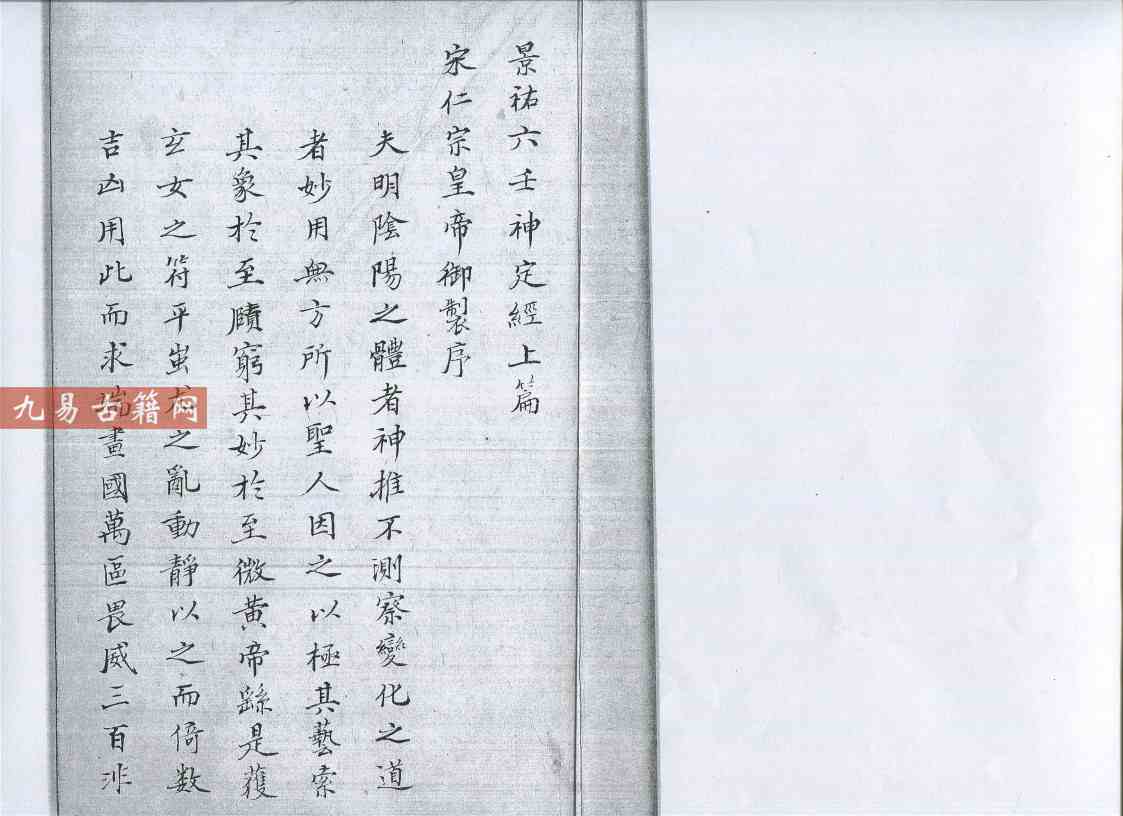 景祐六壬神定經上篇
宋仁宗皇帝御製序
夫明陰陽之體者神推不測察變化之道
者妙用無方所以聖人因之以極其藝索
其象於至賾窮其妙於至微黃帝繇是獲
玄女之符平蚩尤之亂動靜以之而倚數
吉凶用此而求端畫國萬區畏威三百非
九易古籍网